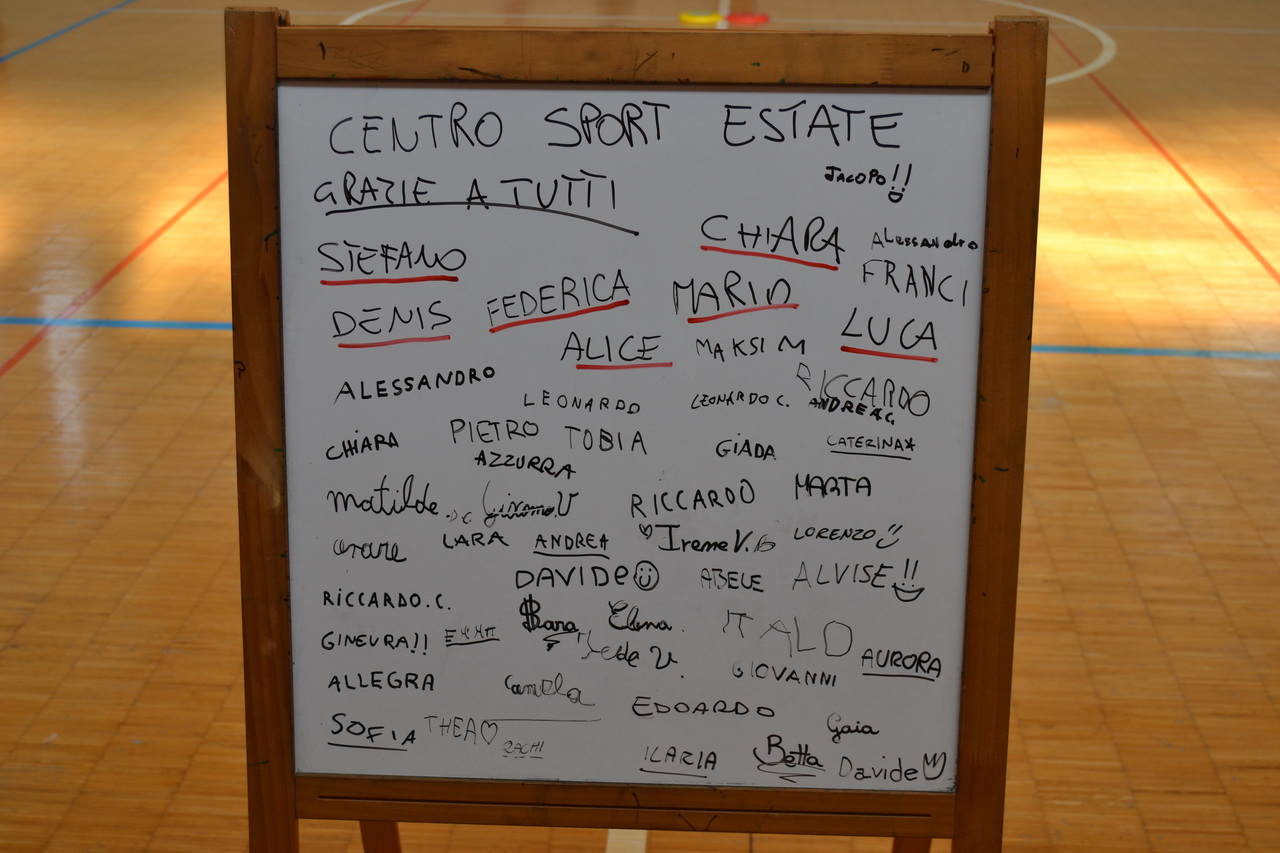 CENTRO SPORT ESTATE
JACOPO!!
GRAZIE A TUTTI
CHIARA ALESSANDRO
STEFANO
FRANCI
FEDERICA MARIO
DENIS LUCA
ALICE MAKSIM
ALESSANDRO RICCARDO
LEONARDO LEONARDO C. ANDREA G.
CHIARA PIETRO TOBIA GIADA CATERINA*
AZZURRA
Matilde. D.C. V RICCARDO MARTA
LARA ANDREA Irene V. LORENZO
DAVIDe ABELE ALVISE!!
RICCARDO.C.
Sara Elena. ITALO
GINEVRA!! V. GIOVANNI AURORA
ALLEGRA EDOARDO
SOFIA THEA Gaia
ILARIA Betta Davide